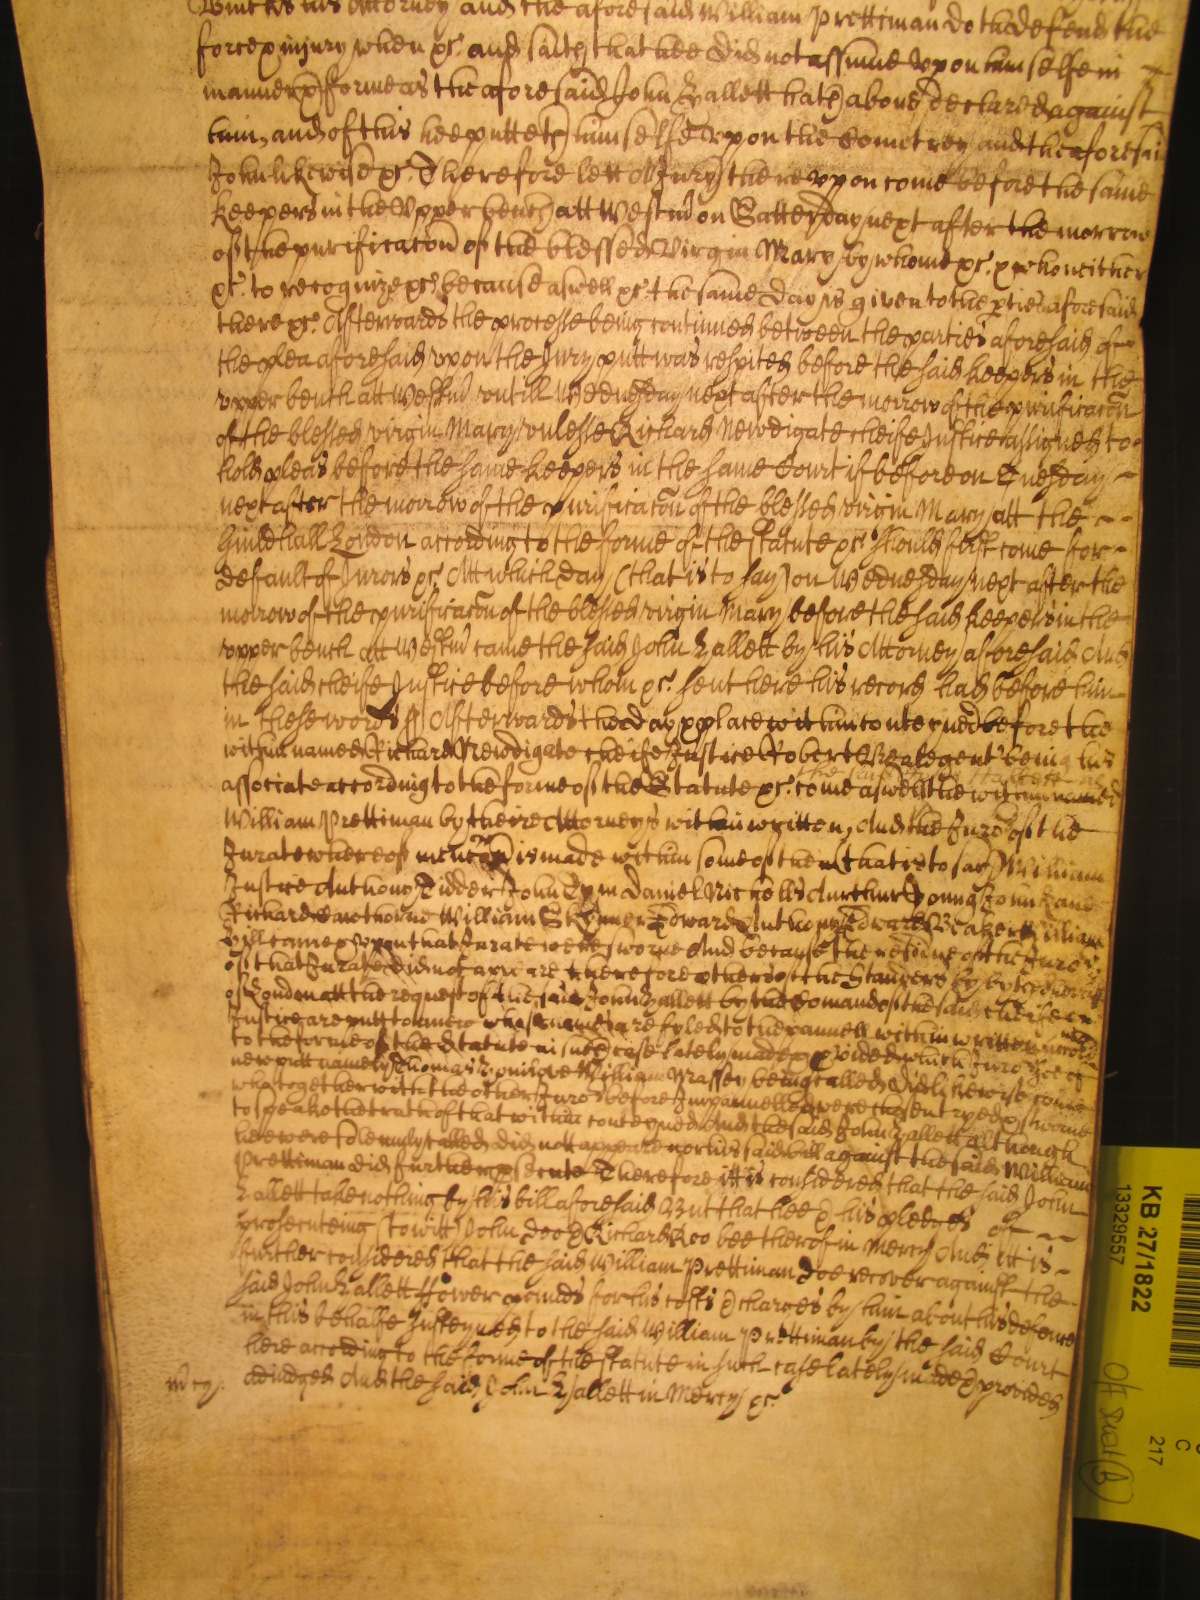 his Attorney and the aforesaid William Prettiman doth defend the
force & injury when &c. and saith that hee did not assume upon himselfe in
manner & forme as the aforesaid John Hallett hath above declared against
him, and of this hee putteth himselfe upon the Countrey and the aforesaid
John likewise &c. Therefore lett a Jury thereupon come before the same
keepers in the Upper bench att Westm on Satterday next after the morrow
of the purificacon of the blessed Virgin Mary by whome &c. & who neither
&c. to recognize &c. because aswell &c. the same day is given to the pties aforesaid
there &c. Afterwards the processe being continued betweene the parties aforesaid of
the plea aforesaid upon the Jury putt was respited before the said keepers in the
upper bench att Westm untill Wednesday next after the morrow of the purificacon
of the blessed virgin Mary unlesse Richard Newdigate cheife Justice assigned to
hold pleas before the same keepers in the same Court if before on Tuesday
next after the morrow of the purificacon of the blessed virgin Mary att the
Guildhall London according to the forme of the statute &c. should first come for
default of Jurors &c. Att which day (that is to say) on Wednesday next after the
morrow of the purificacon of the blessed virgin Mary before the said keepers in the
upper bench att Westm came the said John Hallett by his Attorney aforesaid And
the said cheife Justice before whom &c. sent here his record had before him
in these words Afterwards the day & place within conteyned before the
within named Richard Newdigate cheife Justice Robert gent being his
associate according to the forme of the Statute &c. come aswell the within named
William Prettiman by theire Attorneys within written, And the Juro's of the
Jurate whereof mencon is made within some of them (that is to say) William
Justice Anthony John Tym Daniel Nicholls Arthur Young John Lane
Richard Hawthorne William Skynner Edward Anthony Edward Baker William
Hill came & upon that Jurate were sworne And because the residue of the Juro's
of that Jurate did not appeare therefore others of the Standers by by
of London att the request of the said John Hallett by the Comand of the said cheife
Justice are putt to anew whose names are fyled to the pannell within written according
to the forme of the Statute in such case lately made & provided which Juro's soe of
new putt namely Thomas William Massey being called did likewise come
who together with the other Juro's before Impannelled were chosen tryed & sworne
to speake the truth of that within conteyned And the said John Hallett although
hee were solemnly called did nott appeare nor his said bill against the said William
Prettiman did further psecute Therefore itt is considered that the said John
Hallett take nothing by his bill aforesaid But that hee & his pledges of
prosecuteing (to witt) John Doo & Richard Roo bee therof in Mercy And itt is
further considered that the said William Prettiman doe recover against the
said John Hallett Fower pounds for his costs & charges by him about his defence
in this behalfe susteyned to the said William Prettiman by the said Court
here according to the forme of the statute in such case lately made & provided
mcy. adiudged And the said John Hallett in Mercy &c.
KB 27/1822
13329557
C
217